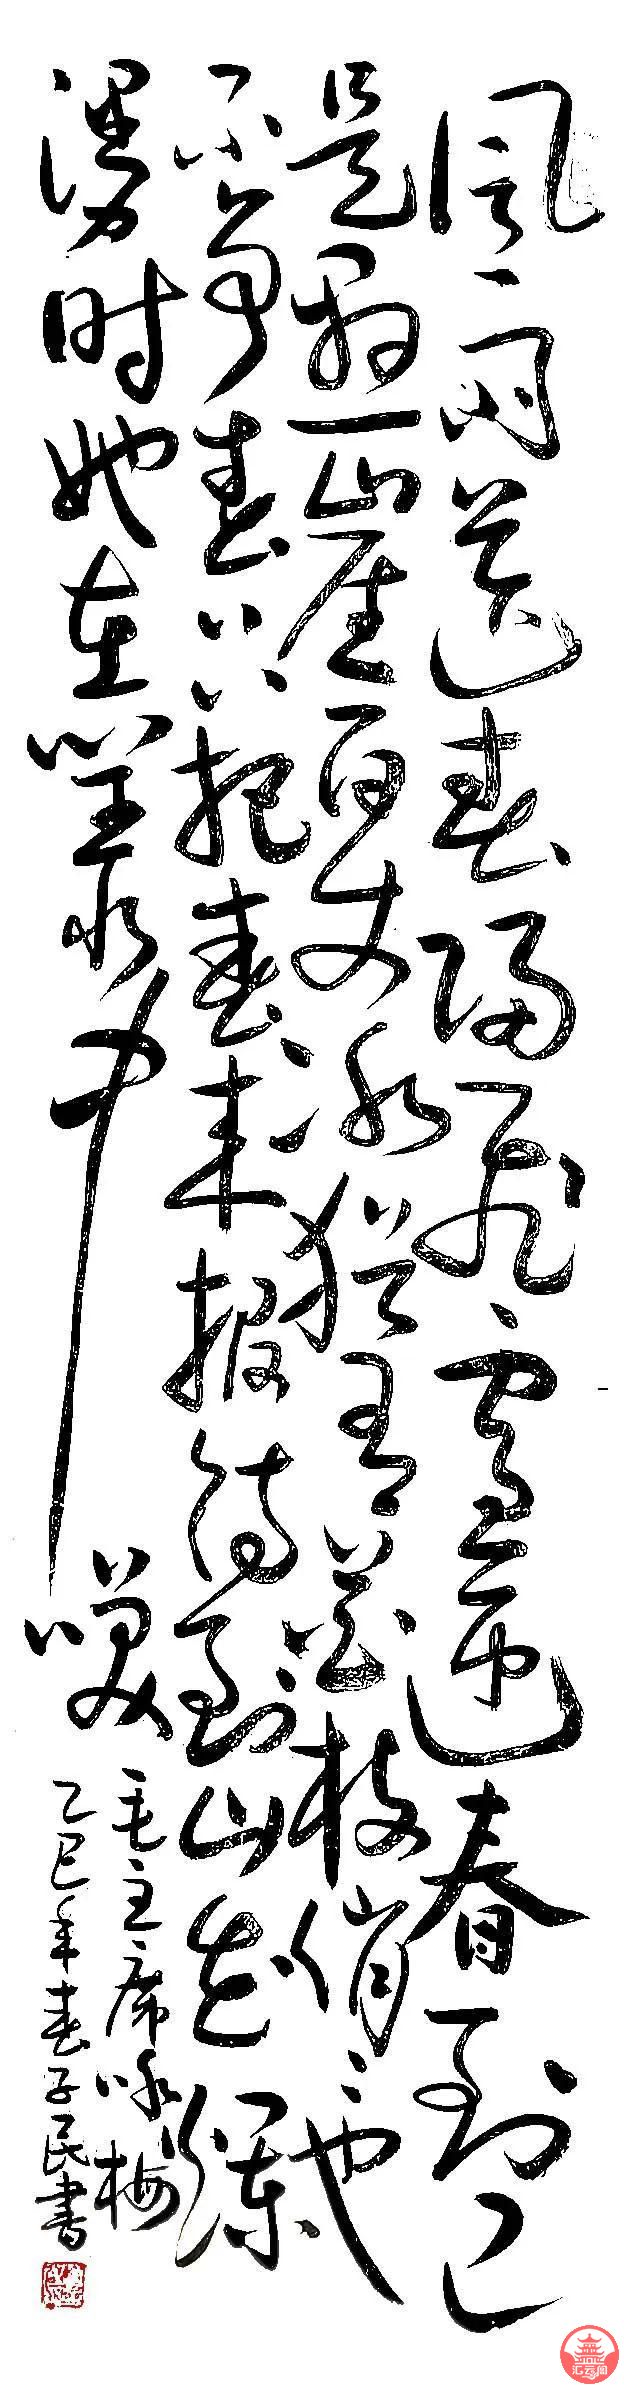 风雨送春归飞雪迎春到已
是悬崖百丈冰犹有花枝俏々也
不争春只把春来报待到山花烂
漫时她在丛中笑
毛主席咏梅
乙巳年春子民書